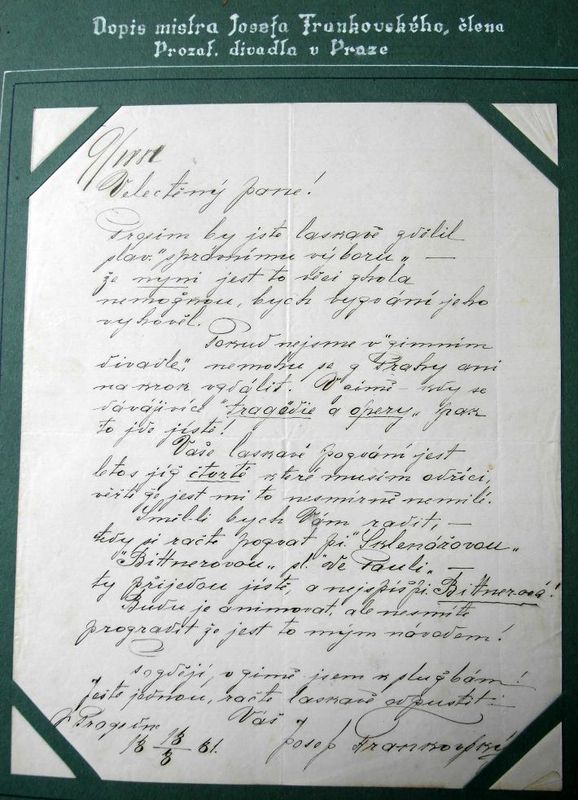 Dopis mistra Josefa Frankovského, člena
Prozat. divadla v Praze
9/1881
Velectěný pane!
Prosím by jste laskavě zdělil
slav. "správnímu výboru" —
že nyní jest to věcí zhola
nemožnou, bych vyzvání jeho
vyhověl.
Pokud nejsme v "zimním
divadle", nemohu se z Prahy ani
na krok vzdálit. V zimě kdy se
dávají více "tragédie a opery" pak
to jde jistě!
Vaše laskavé pozvání jest
letos již čtvrté které musím odříci,
věřte že jest mi to nesmírně nemilé.
Smím-li bych Vám radit, —
tedy si račte pozvat pí. "Sklenářovou"
"Bittnerovou" sl. "de Pauli" —
ty přijedou jistě, a nejspíš pí. Bittnerová!
Budu je animovat, ale nesmíte
prozradit že jest to mým návodem!
později, v zimě jsem k službám!
Ještě jednou, račte laskavě odpustit:
Váš
Josef Frankovský
V Praze
18 13/8 81.